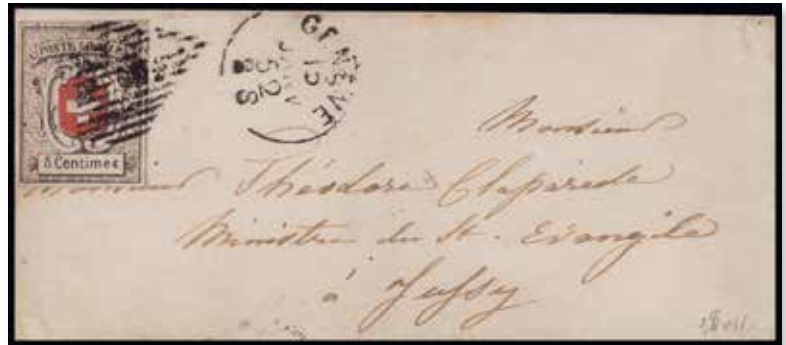 POSTE LOCALE
5 Centimes
GENÈVE
15
JANV
52
8 S
Monsieur
Monsieur Théodore Claparède
Ministre du St. Evangile
à Jussy